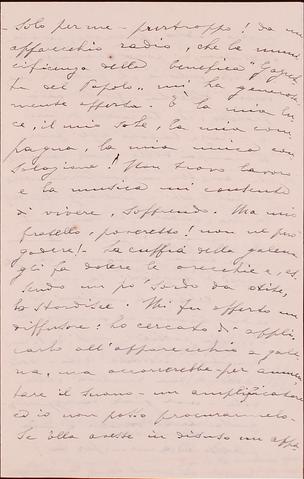 solo per me - purtroppo! da un
apparecchio radio, che la muni
ficenza della benefica "Gazzet
ta del Popolo" mi ha generosa
mente offerta. È la mia lu
ce, il mio sole, la mia com
pagna, la mia unica con
solazione! Non trovo lavoro
e la musica mi contenta
di vivere, soffrendo. Ma mio
fratello, poveretto! non ne può
godere! La cuffia della galena
gli fa dolere le orecchie e, es
sendo un po' sordo da otite,
lo stordisce. Mi fu offerto un
diffusore: ho cercato di appli
carlo all'apparecchio a gale
na, ma occorrerebbe - per aumen
tare il suono - un amplificatore
ed io non posso procurarmelo.
Se ella avesse in disuso un appa